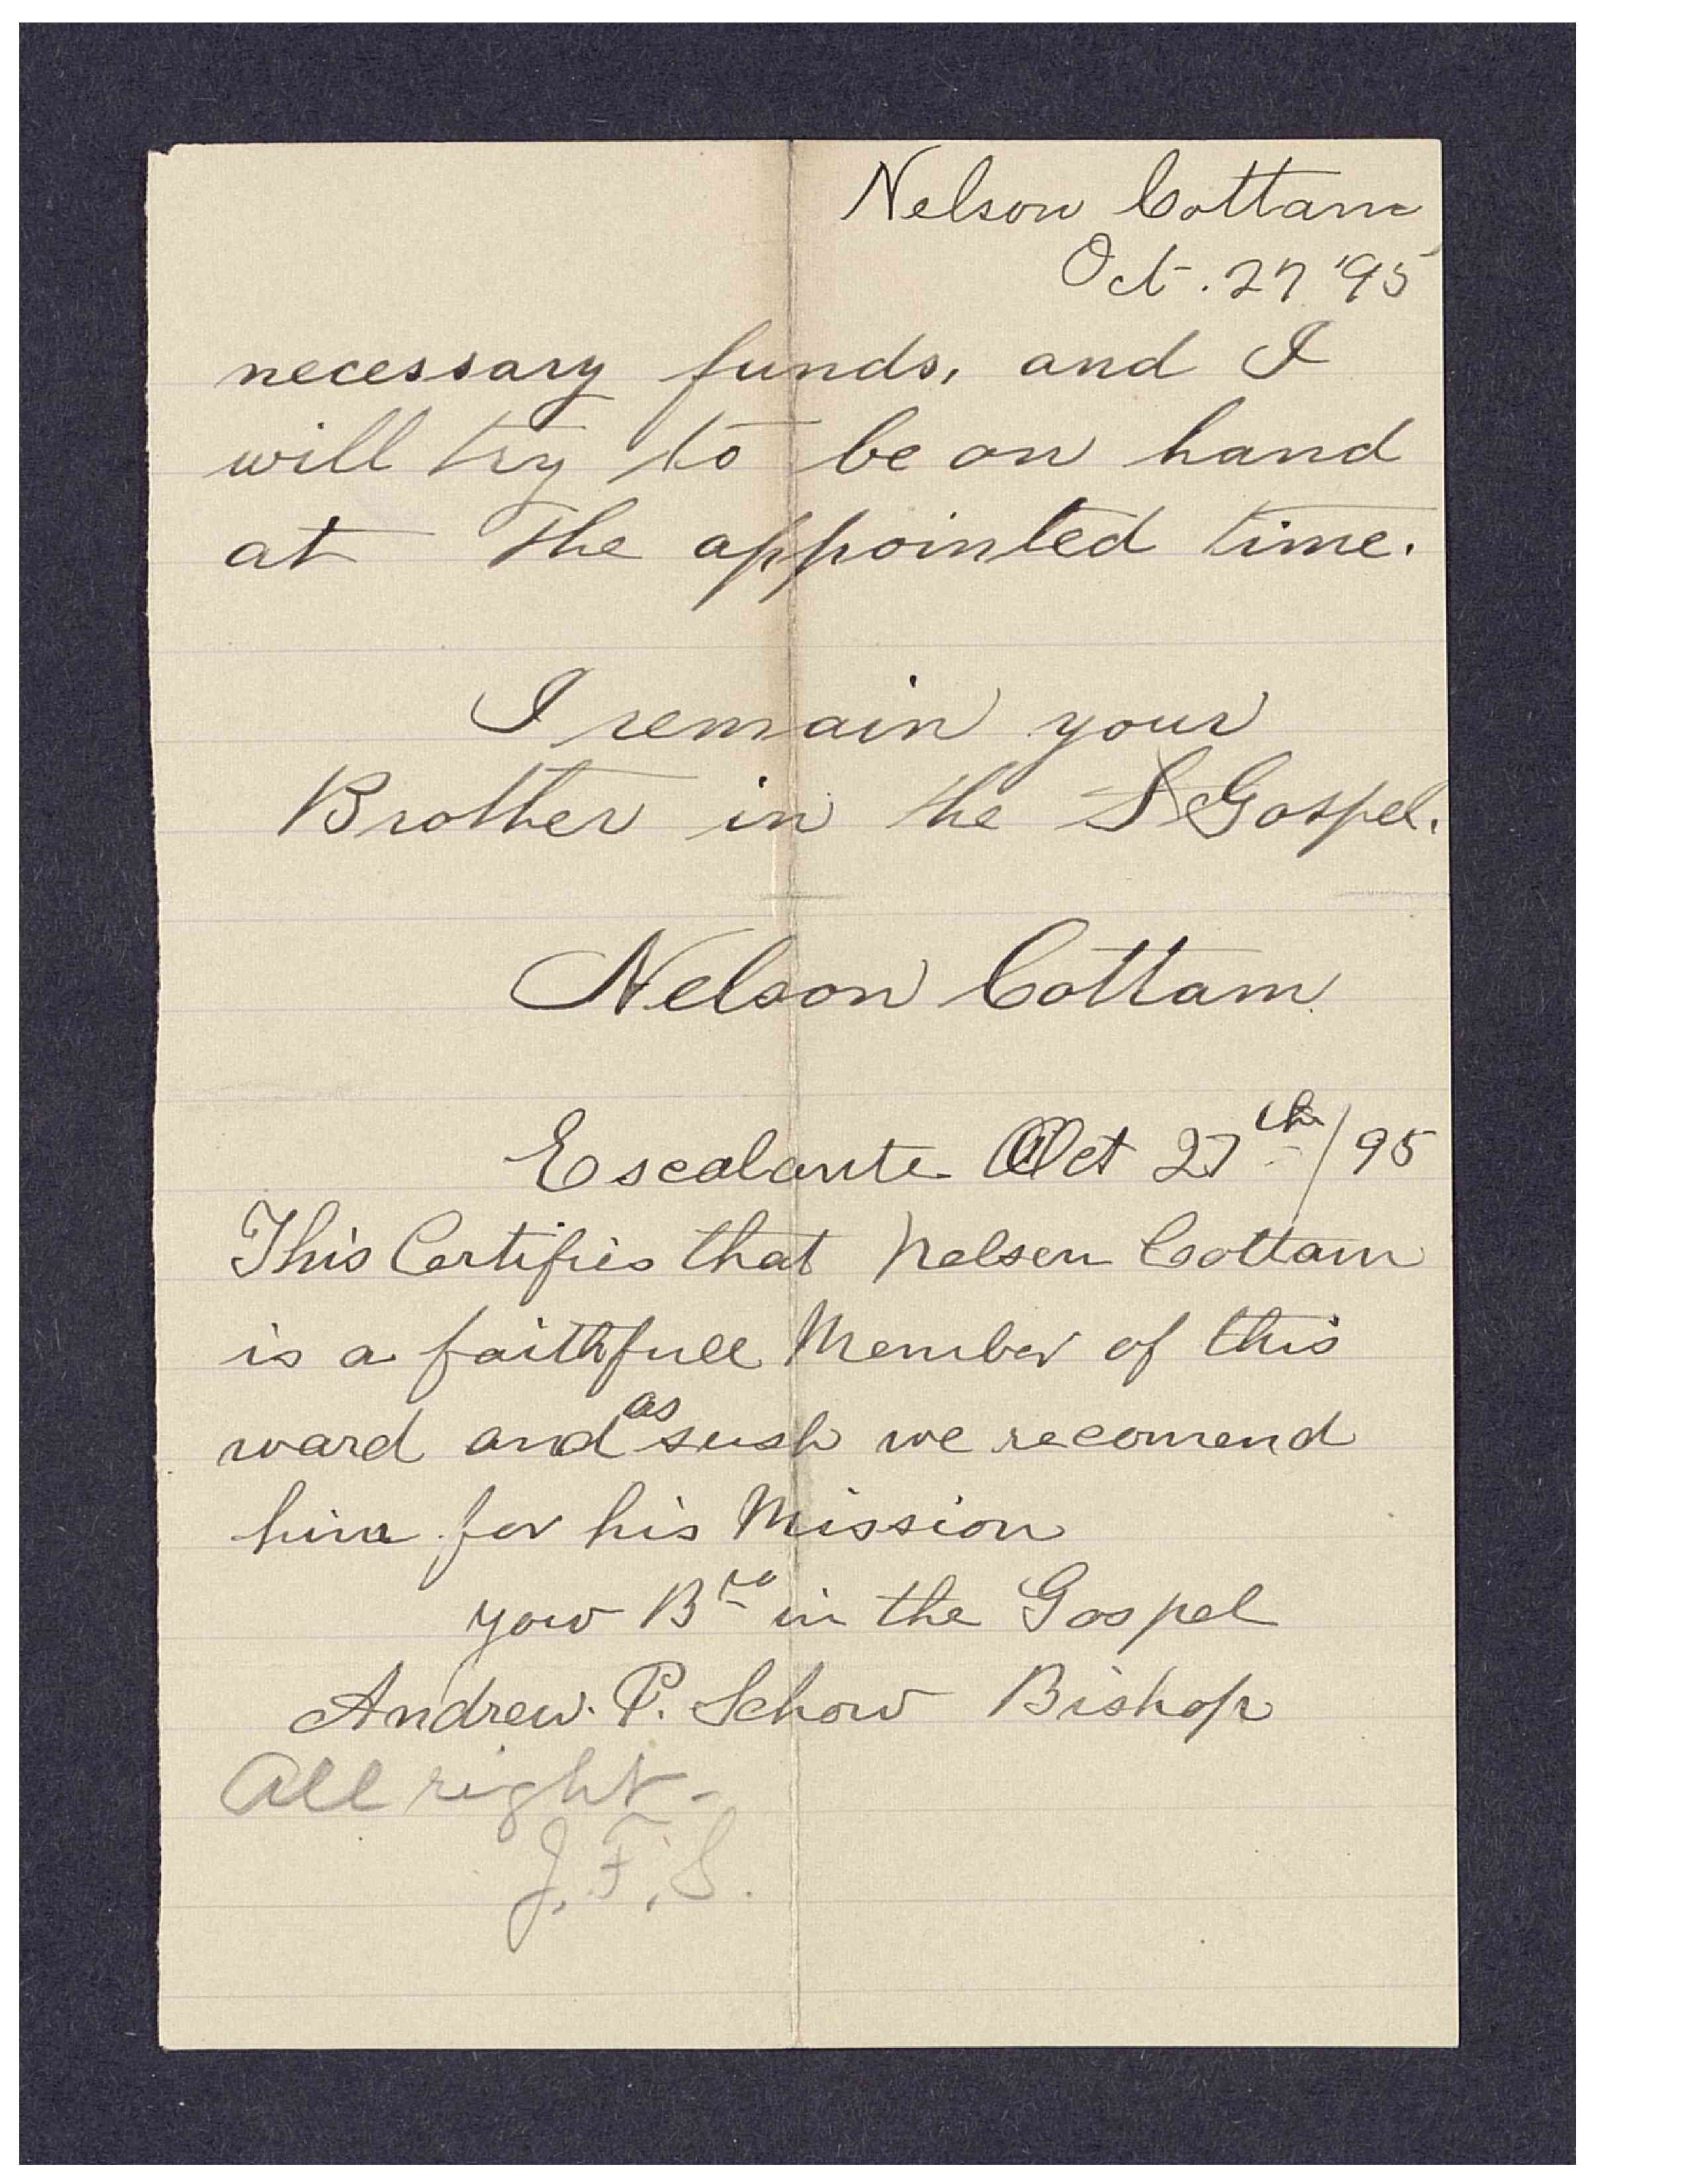 Nelson Cottam
Oct. 27 '95
necessary funds, and I
will try to be on hand
at the appointed time.
I remain your
Brother in the S Gospel.
Nelson Cottam
Escalante Oct 27th/95
This Certifies that Nelsen Cottam
is a faithfull Member of this
ward and as such we recomend
him for his Mission
your Bro in the Gospel
Andrew. P. Schow Bishop
All right -
J. F. S.